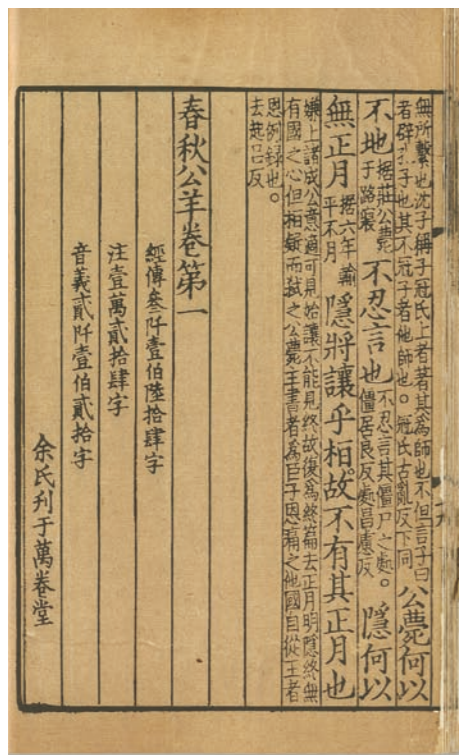 無所繫也沈子稱子冠氏上者著其為師也不但言子曰
者辟孔子也其不冠子者他師也。冠氏古亂反下同
公薨何以
不地
据莊公薨
于路寢
不忍言也
不忍言其僵尸之處。
僵居良反處昌慮反
隱何以
無正月
据六年輸
平不月
隱將讓乎桓故不有其正月也
嫌上諸成公意適可見始讓不能見終故復為終篇去正月明隱終無
有國之心但桓疑而弒之公薨主書者為臣子恩痛之他國自從王者
恩例録也。
去起呂反
春秋公羊卷第一
經傳叄阡壹伯陸拾肆字
注壹萬貳拾肆字
音義貳阡壹伯貳拾字
余氏刊于萬卷堂